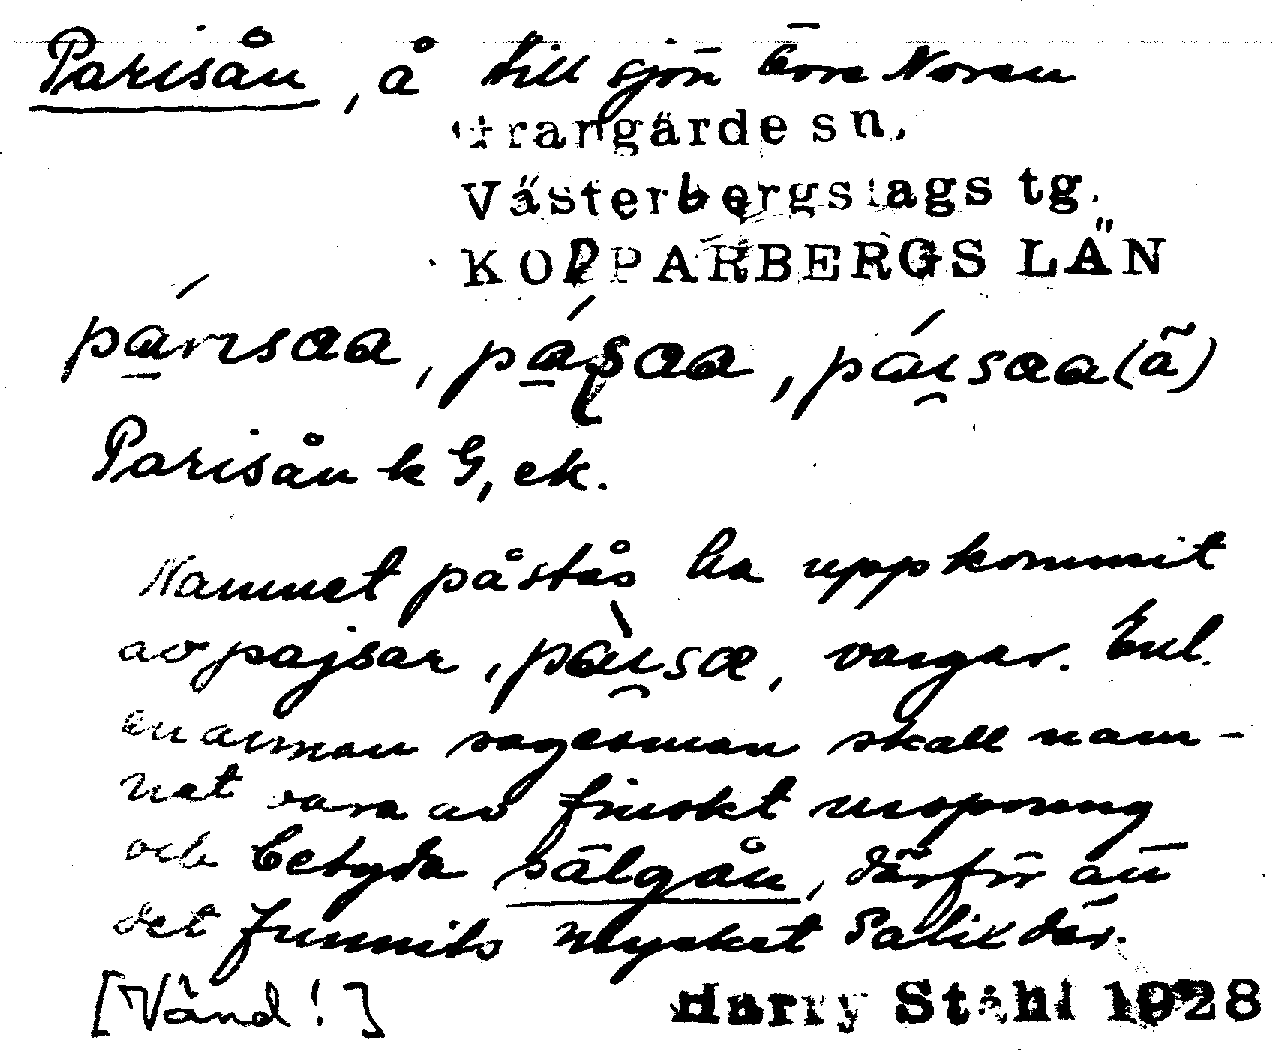 Parisån, å till sjön Övre Noren
Grangärde sn.
Västerbergslags tg.
KOPPARBERGS LÄN
Parisån k G, ek.
Namnet påstås ha uppkommit
av pajsar, vargar. Enl.
en annan sagesman skall nam-
net vara av finskt ursprung
och betyda sälgån, därför att
det funnits mycket Salix där.
[Vänd!]
Harry Ståhl 1928